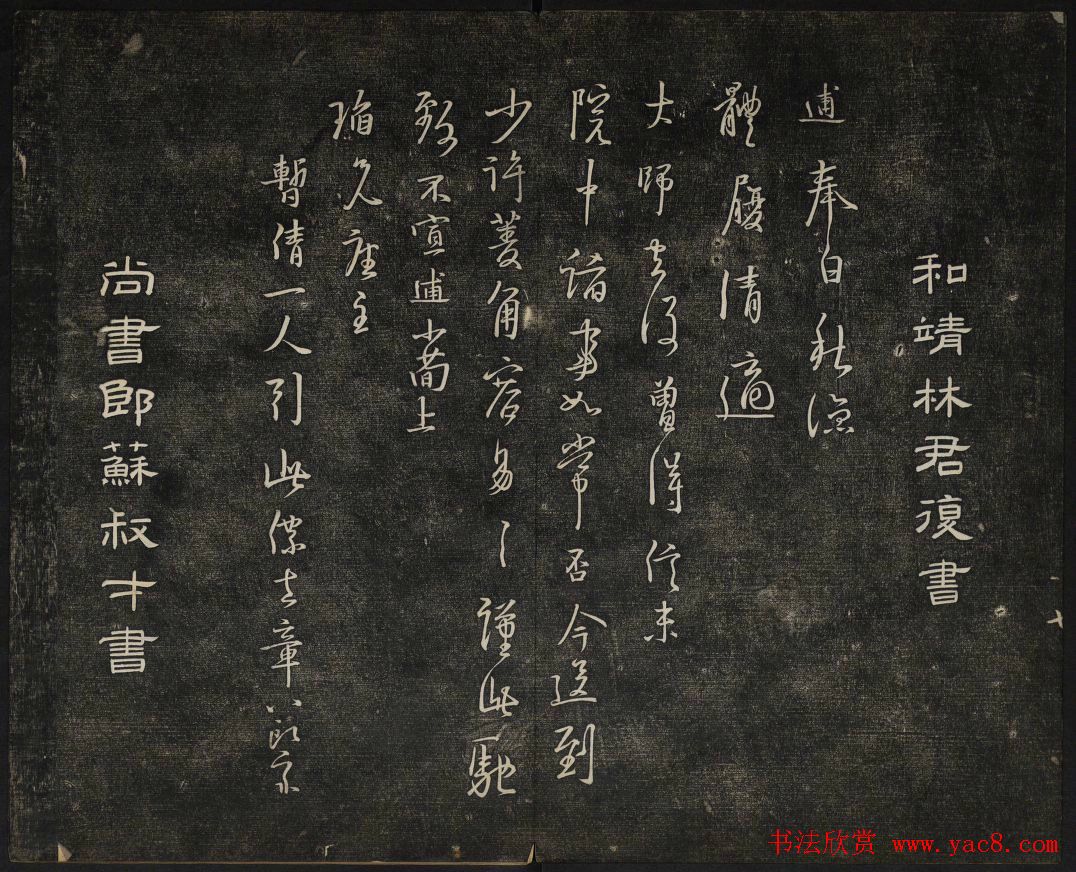 和靖林君復書
逋奉白秋涼
體履清適
大師去後曾得信未
院中諸事如常否今送到
少許菱角容易〻謹此馳
致不宣逋小簡上
瑫兄座主
暫倩一人引此僕去章八郎家
尚書郎蘇叔才書
书法欣赏 www.yac8.com